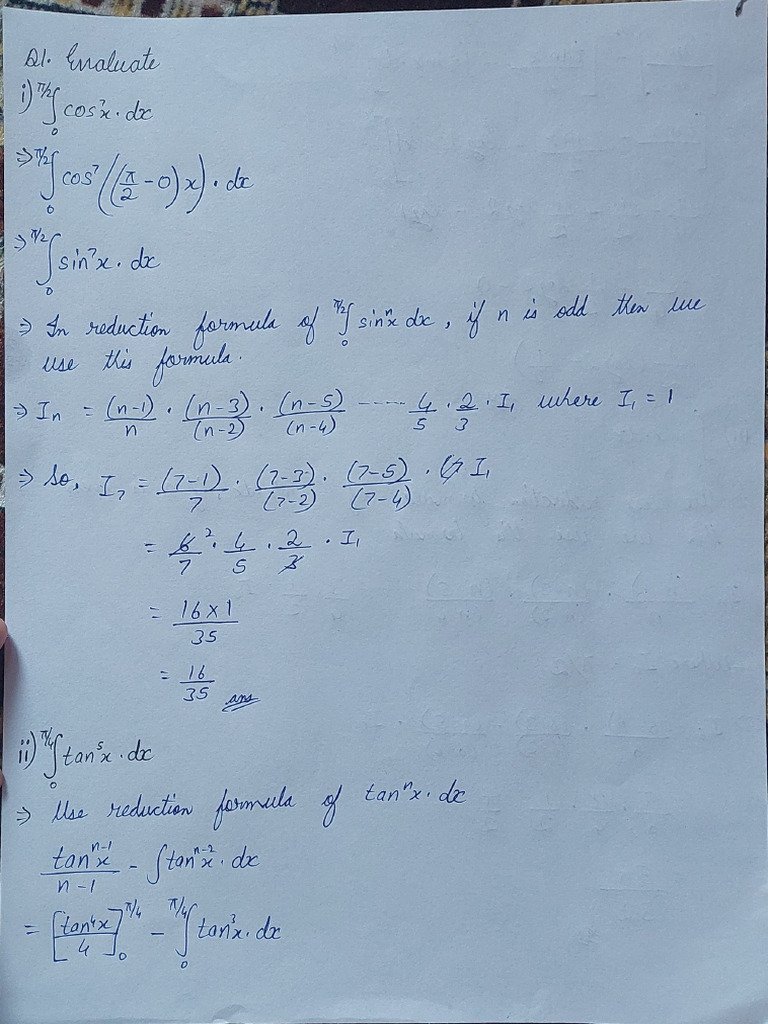 Q1. Evaluate
i) ∫₀^{π/2} cos⁷x · dx
⇒ ∫₀^{π/2} cos⁷((π/2 - 0)x) · dx
⇒ ∫₀^{π/2} sin⁷x · dx
⇒ In reduction formula of ∫₀^{π/2} sinⁿx dx, if n is odd then we
use this formula.
⇒ Iₙ = (n-1)/n · (n-3)/(n-2) · (n-5)/(n-4) ----- 4/5 · 2/3 · I₁ where I₁ = 1
⇒ So, I₇ = (7-1)/7 · (7-3)/(7-2) · (7-5)/(7-4) · I₁
= 6²/7 · 4/5 · 2/3 · I₁
= 16×1/35
= 16/35 ans
ii) ∫₀^{π/4} tan⁵x · dx
⇒ Use reduction formula of tanⁿx · dx
tanⁿ⁻¹x/n-1 - ∫tanⁿ⁻²x · dx
= [tan⁴x/4]₀^{π/4} - ∫₀^{π/4} tan³x · dx